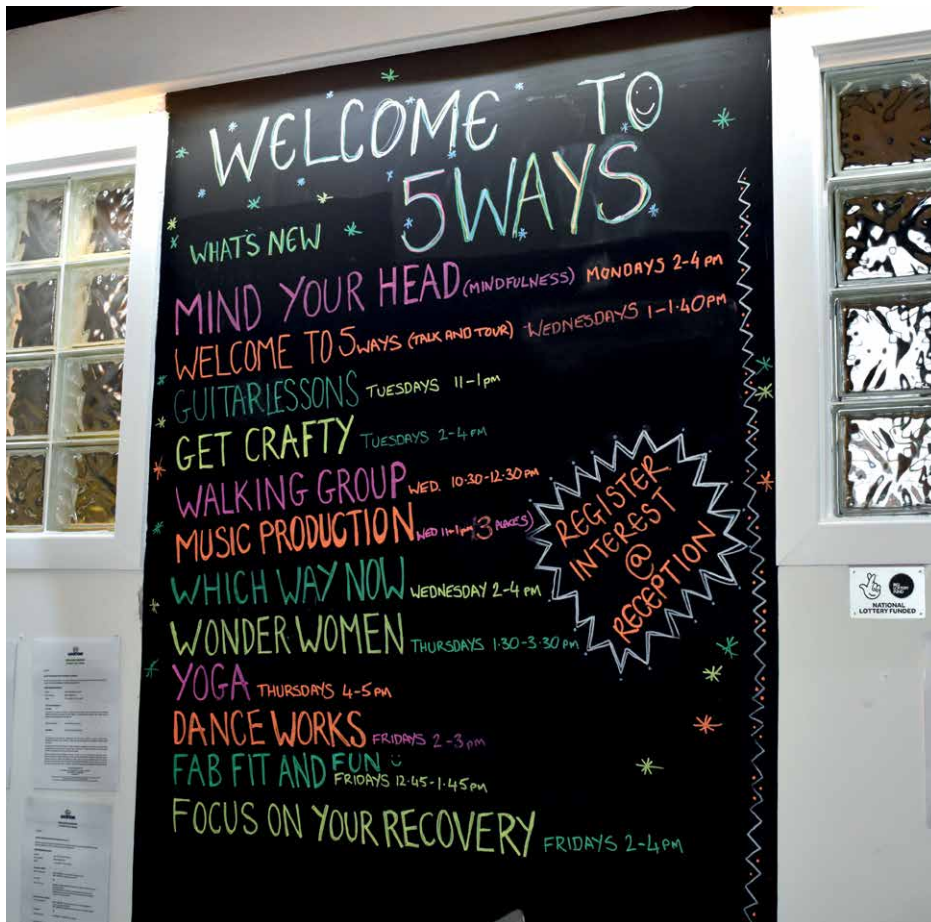 WELCOME TO
5WAYS
WHAT'S NEW
MIND YOUR HEAD (MINDFULNESS) MONDAYS 2-4pm
WELCOME TO 5WAYS (TALK AND TOUR) WEDNESDAYS 1-1·40PM
GUITAR LESSONS TUESDAYS 11-1pm
GET CRAFTY TUESDAYS 2-4PM
WALKING GROUP WED. 10·30-12·30pm
MUSIC PRODUCTION WED 11-1pm 3 PLACES)
WHICH WAY NOW WEDNESDAY 2-4pm
WONDER WOMEN THURSDAYS 1·30-3·30pm
YOGA THURSDAYS 4-5pm
DANCE WORKS FRIDAYS 2-3pm
FAB FIT AND FUN
FRIDAYS 12·45-1·45pm
FOCUS ON YOUR RECOVERY FRIDAYS 2-4PM
REGISTER
INTEREST
@
RECEPTION
NATIONAL
LOTTERY FUNDED